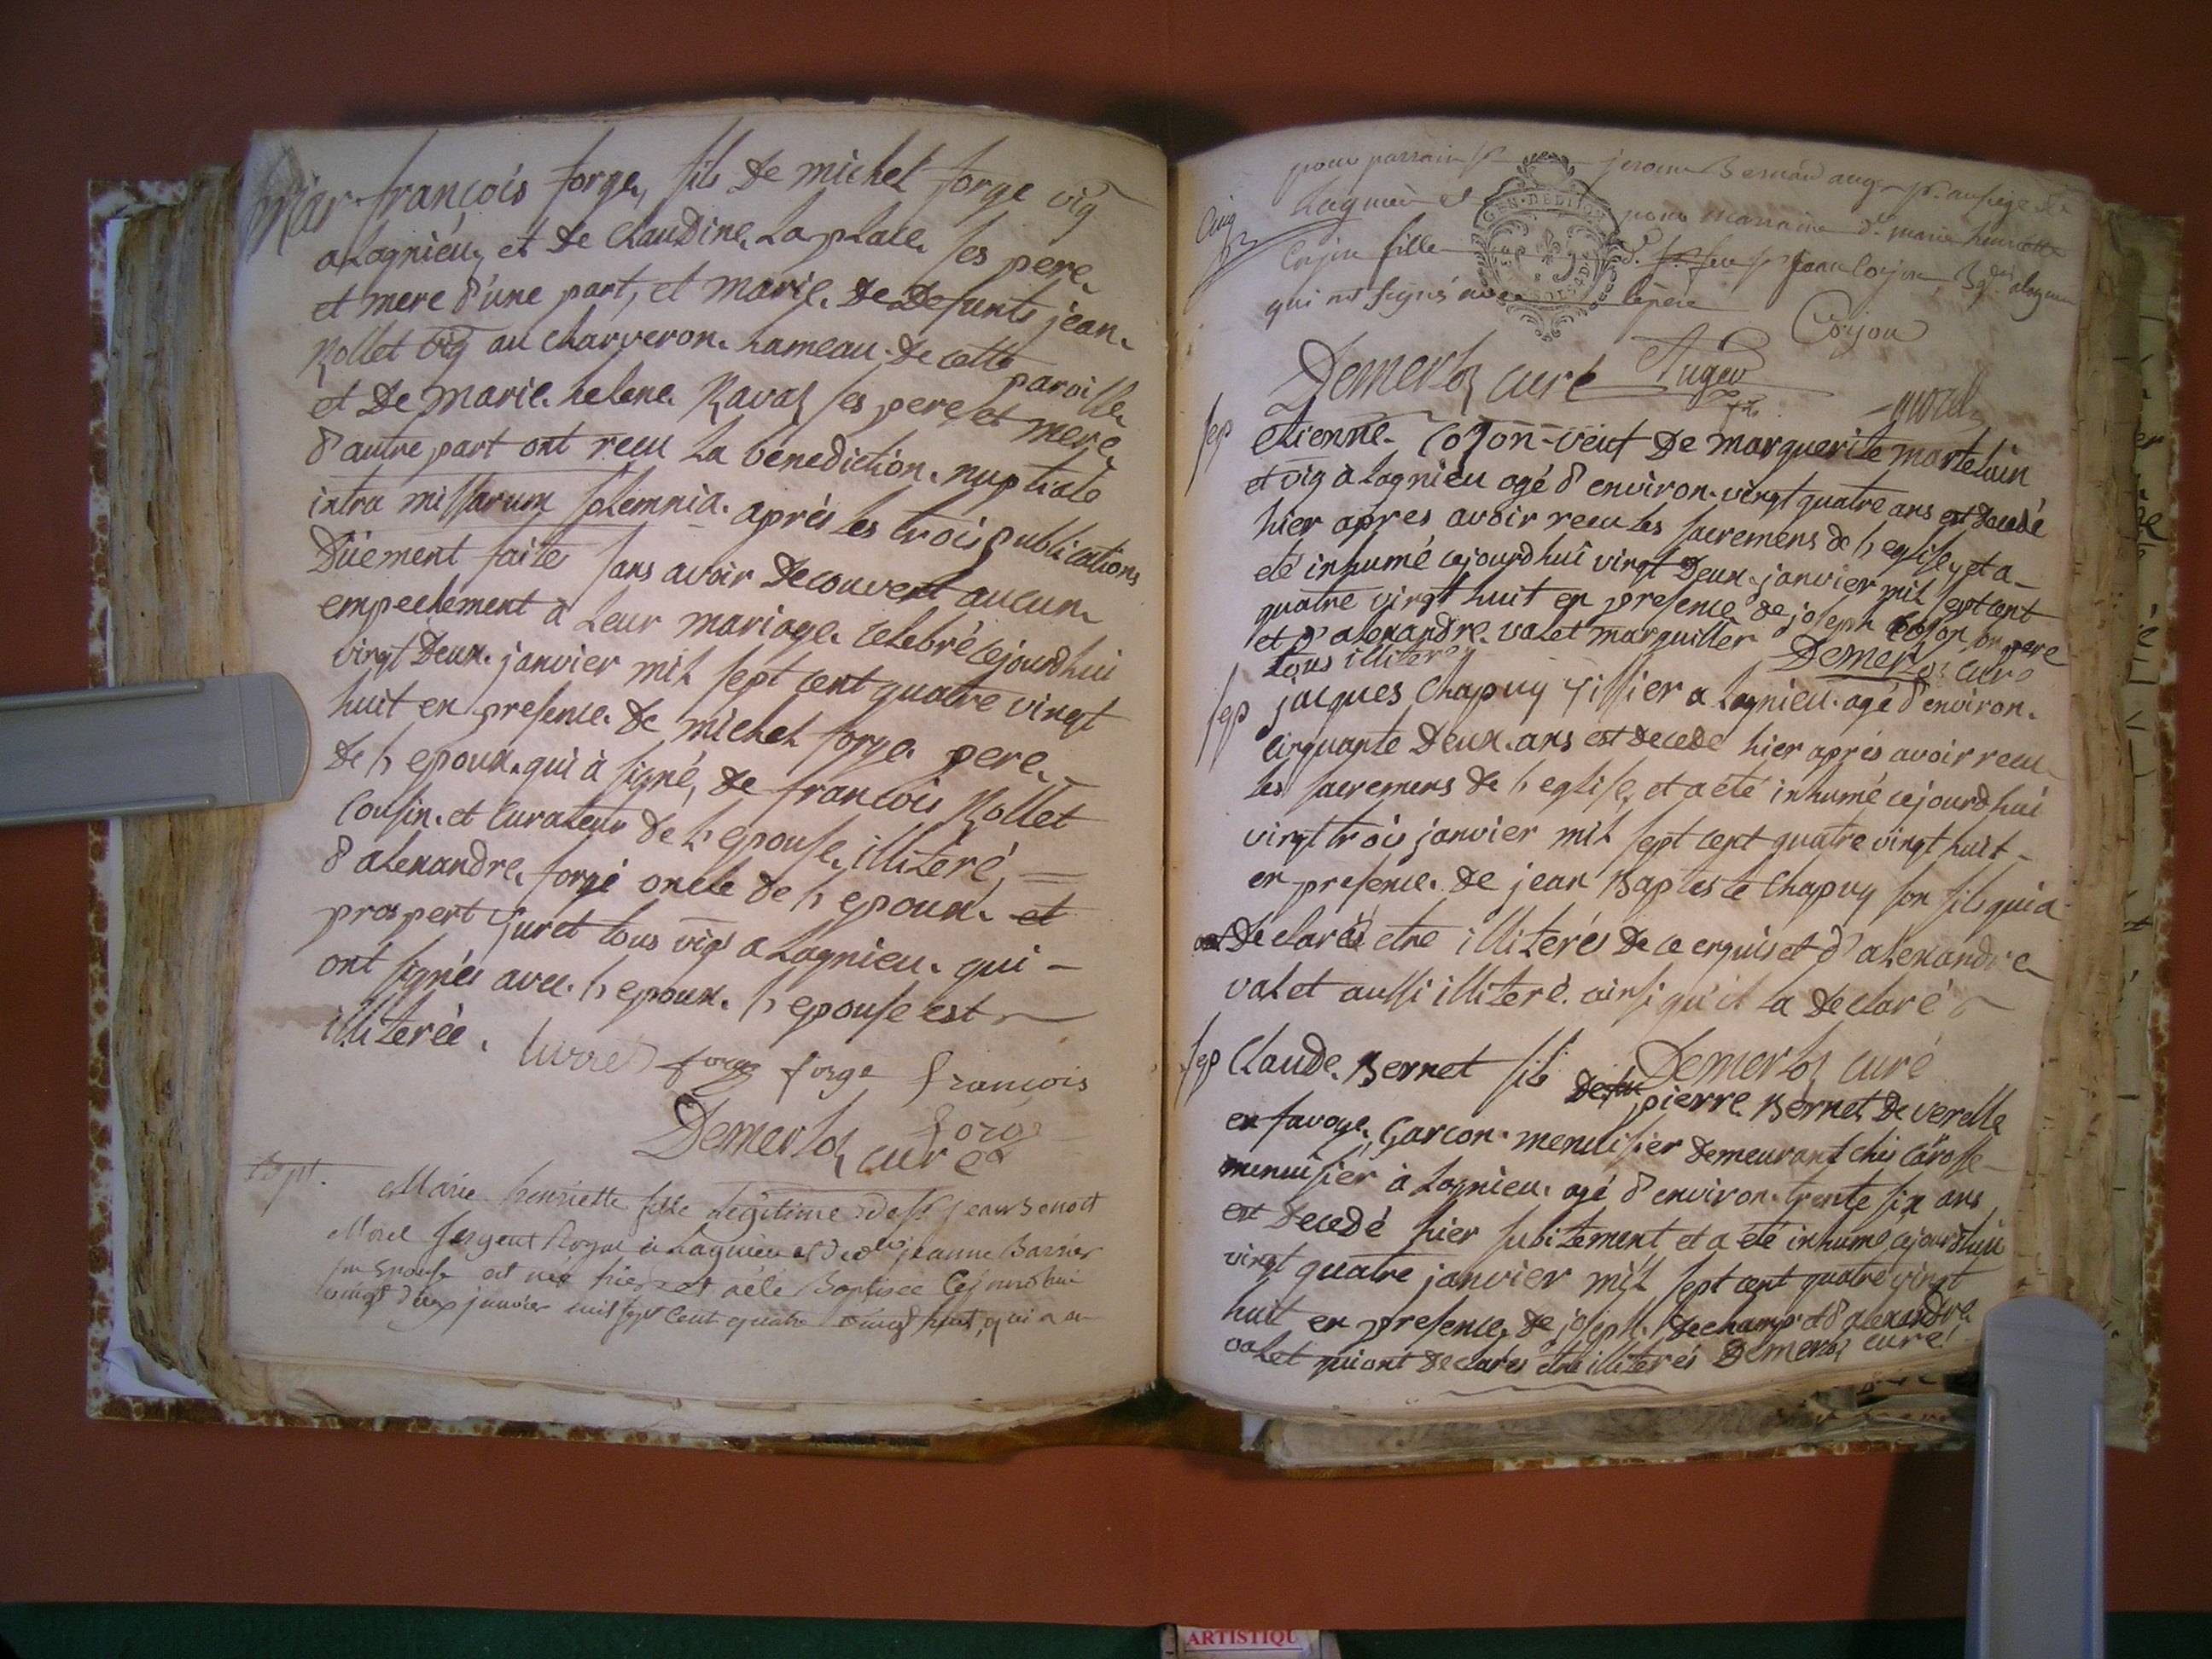 Mar françois forge, fils de michel forge vig
a Lagnieu, et de claudine Laplace ses pere
et mere d'une part, et marie de defunts jean
Rollet vig au charveron hameau de cette paroisse
et de marie helene Ravat ses pere et mere
d'autre part ont recu La benediction nuptiale
intra missarum solemnia. aprés les trois publications
Düement faites sans avoir decouvert aucun
empechement à Leur mariage celebré cejourdhui
vingt deux janvier mil sept cent quatre vingt
huit en presence de michel forge pere
de l'epoux qui à signé, de francois Rollet
cousin et curateur de l'epouse illiteré,
d'alexandre forge oncle de l'epoux et
prospert Curet tous vigs a Lagnieu qui
ont signés avec l'epoux. l'epouse est
illiterée.
forge forge francois
forge
Demerloz curé
Bapt.
Marie henriette fille Legitime de Sr jean Benoit
Morel sergent Royal à Lagnieu et de dlle jeanne Barrier
son Epouse est née hier et a été Baptisée Cejourdhui
vingt deux janvier mil sept Cent quatre vingt huit, qui a eu
pour parrain Sr jerome Bernard auger pr. au siege de
Lagnieu et pour marraine dlle marie henriette
Cojon fille d. feu Sr jean Cojon, Bg. a lagnieu
qui ont signés avec le pere
Cojon
Demerloz curé Auger morel
sep etienne Cojon veuf De marguerite martelain
et vig à Lagnieu agé d'environ vingt quatre ans est decedé
hier apres avoir recu les sacremens de l'eglise, et a
eté inhumé cejourdhui vingt deux janvier mil sept cent
quatre vingt huit en presence de joseph Cojon son pere
et d'alexandre valet marguiller
tous illiterés Demerloz curé
sep jacques Chapuy a Lagnieu agé d'environ
cinquante deux ans est decede hier aprés avoir recu
les sacremens de l'eglise, et a eté inhumé cejourdhui
vingt trois janvier mil sept cent quatre vingt huit
en presence de jean Baptiste Chapuy son fils qui a
declarés etre illiterés de ce enquis et d'alexandre
valet aussi illiteré ainsi qu'il la declaré
Demerloz curé
sep Claude Bernet fils de feu pierre Bernet De verelle
en savoye, Garcon menuisier demeurant chés Carosse
menuisier à Lagnieu agé d'environ trente six ans
est decedé hier subitement et a eté inhumé cejourdhui
vingt quatre janvier mil sept cent quatre vingt
huit en presence de joseph dechamp et d'alexandre
valet qui ont declarés etre illiterés Demerloz curé
GEN. DE DIJON
ARTISTIQU